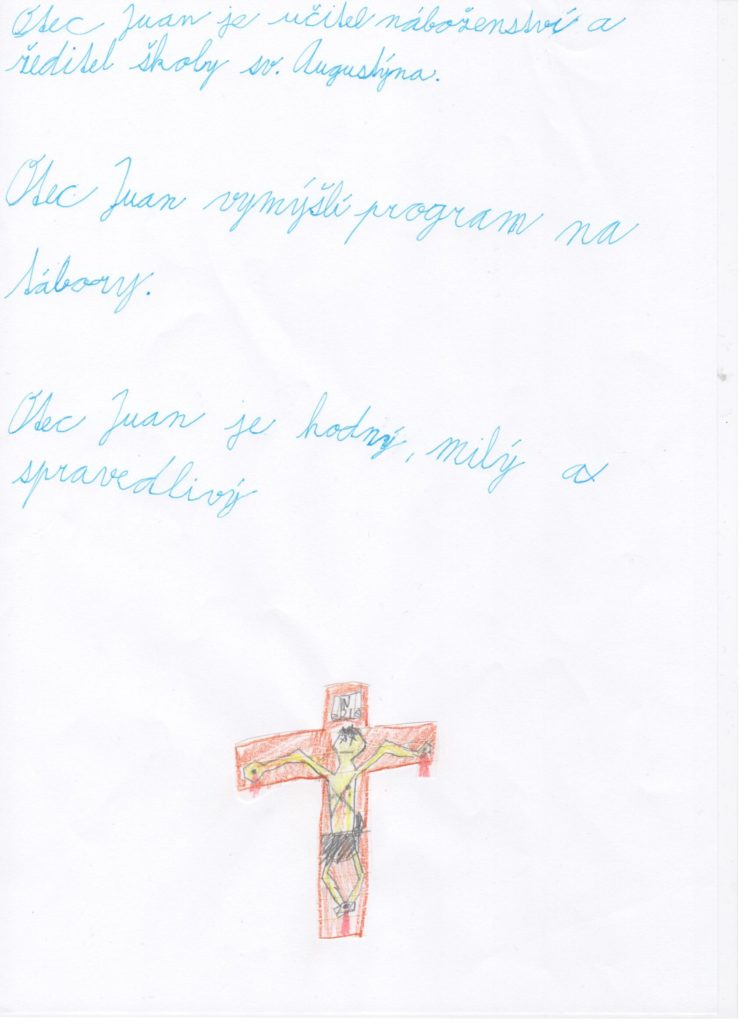 Otec Juan je učitel náboženství a
ředitel školy sv. Augustýna.
Otec Juan vymýšlí program na
tábory.
Otec Juan je hodný, milý a
spravedlivý
IN